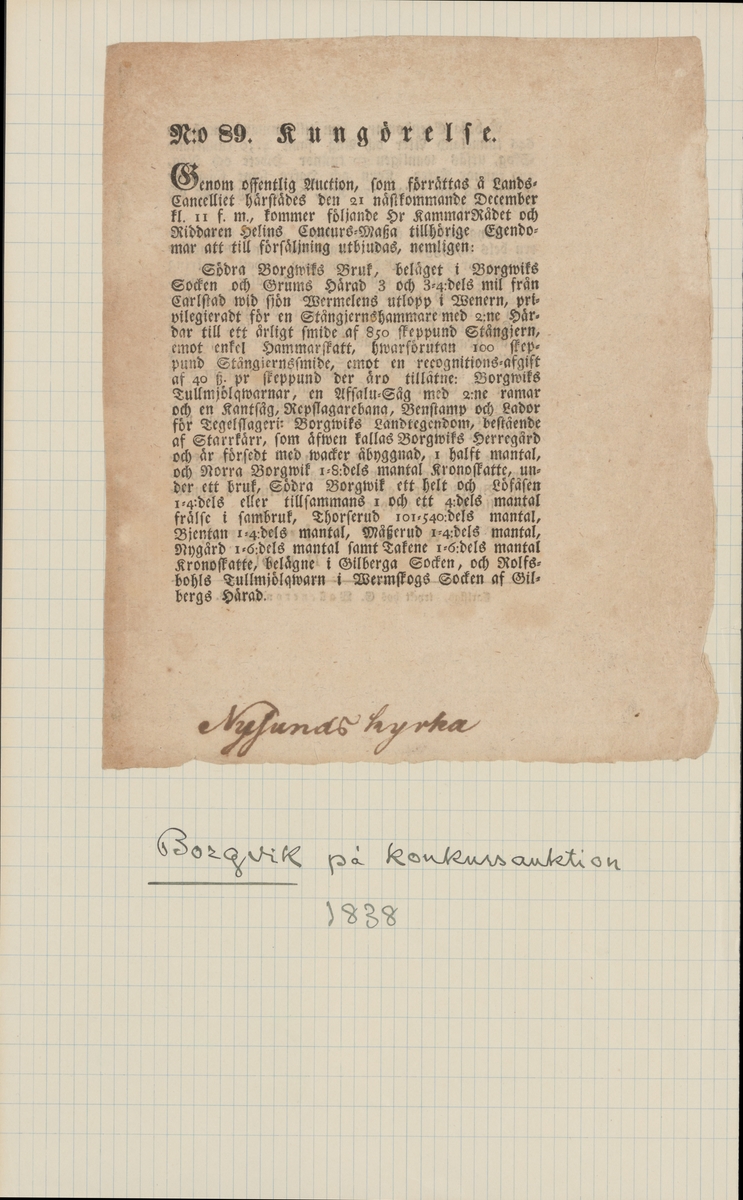 N:o 89. Kungörelse.
Genom offentlig Auction, som förrättas å Lands-
Cancelliet härstädes den 21 nästkommande December
kl. 11 f. m., kommer följande Hr KammarRådet och
Riddaren Helins Concurs-Massa tillhörige Egendo-
mar att till försäljning utbjudas, nemligen:
Södra Borgwiks Bruk, beläget i Borgwiks
Socken och Grums Härad 3 och 3-4:dels mil från
Carlstad wid sjön Wermelens utlopp i Wenern, pri-
vilegieradt för en Stångjernshammare med 2:ne Här-
dar till ett årligt smide af 850 skeppund Stångjern,
emot enkel Hammarskatt, hwarförutan 100 skep-
pund Stångjernssmide, emot en recognitions-afgift
af 40 ß. pr skeppund der äro tillåtne: Borgwiks
Tullmjölqwarnar, en Afsalu-Såg med 2:ne ramar
och en Kantsåg, Repslagarebana, Benstamp och Lador
för Tegelslageri: Borgwiks Landtegendom, bestående
af Starrkärr, som äfwen kallas Borgwiks Herregård
och är försedt med wacker åbyggnad, 1 halft mantal,
och Norra Borgwik 1-8:dels mantal Kronoskatte, un-
der ett bruk, Södra Borgwik ett helt och Löfåsen
1-4:dels eller tillsammans 1 och ett 4:dels mantal
frälse i sambruk, Thorserud 101-540:dels mantal,
Bjentan 1-4:dels mantal, Måßerud 1-4:dels mantal,
Nygård 1-6:dels mantal samt Takene 1-6:dels mantal
Kronoskatte, belägne i Gilberga Socken, och Rolfs-
bohls Tullmjölqwarn i Wermskogs Socken af Gil-
bergs Härad.
Nysunds kyrka
Borgvik på konkursauktion
1838